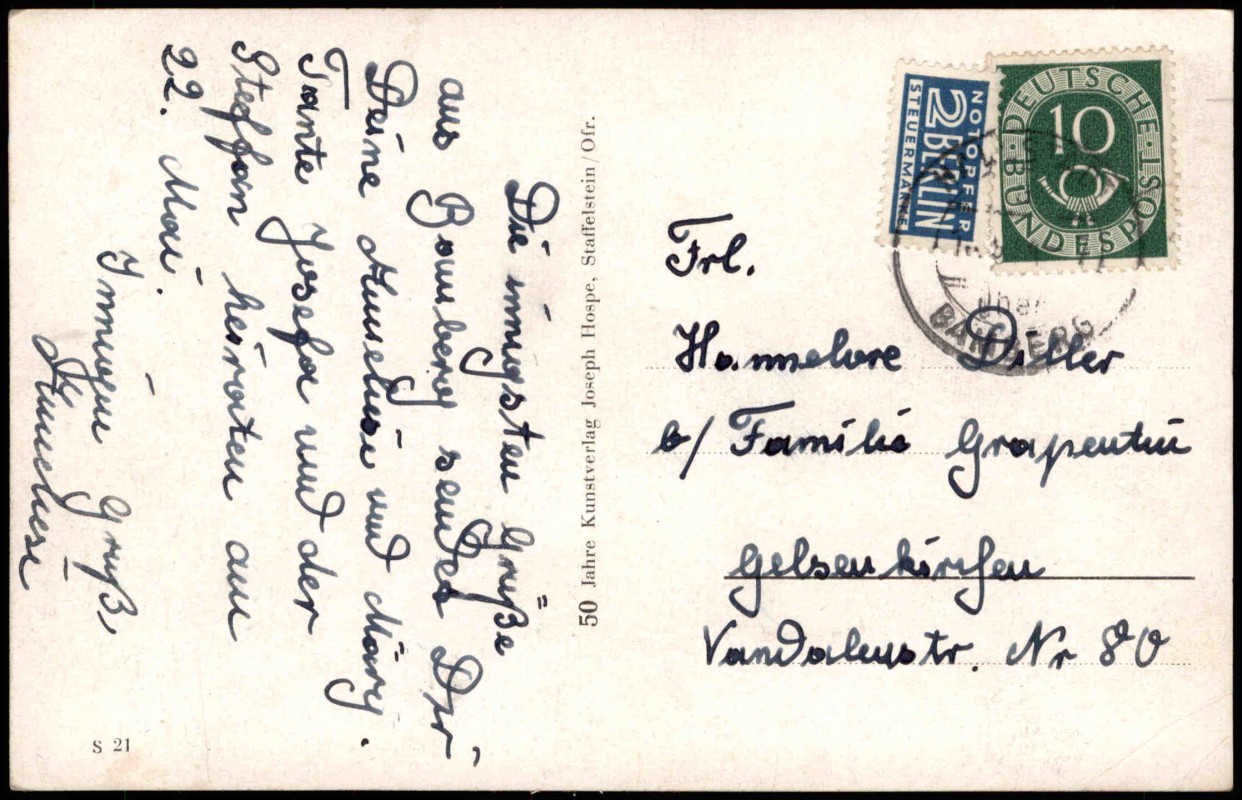 Die innigsten Grüße
aus Bamberg sendet Dir,
Deine Anneliese und Märg.
Tante Josefa und der
Steffan heiraten am
22. Mai.
Innigen Gruß,
Anneliese
50 Jahre Kunstverlag Joseph Hospe, Staffelstein/Ofr.
S 21
NOTOPFER
2 BERLIN
STEUERMARKE
DEUTSCHE
10
BUNDESPOST
über
BAMBERG
Frl.
Hannelore Diller
b/ Familie Grapentin
Gelsenkirchen
Vandalenstr. Nr 80